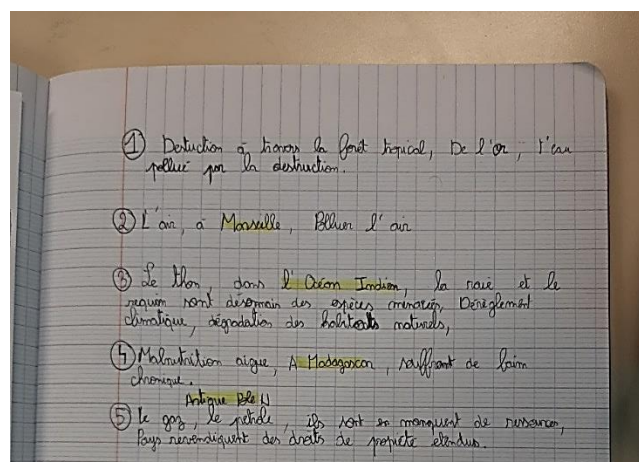 ① Destuction à travers la forêt tropical, De l'or, l'eau
pollué par la destruction.
② L'air, à Marseille, Polluer l'air
③ Le thon, dans l'Océan Indien, la raie et le
requin sont désormais des espèces menacées, Dérèglement
climatique, dégradation des habitats naturels,
④ Malnutrition aigue, A Madagascar, souffrent de faim
chronique.
Artique Pôle N
⑤ Le gaz, le pétrole, ils sont en manquent de ressources,
Pays revendiquent des droits de propiété etendus.